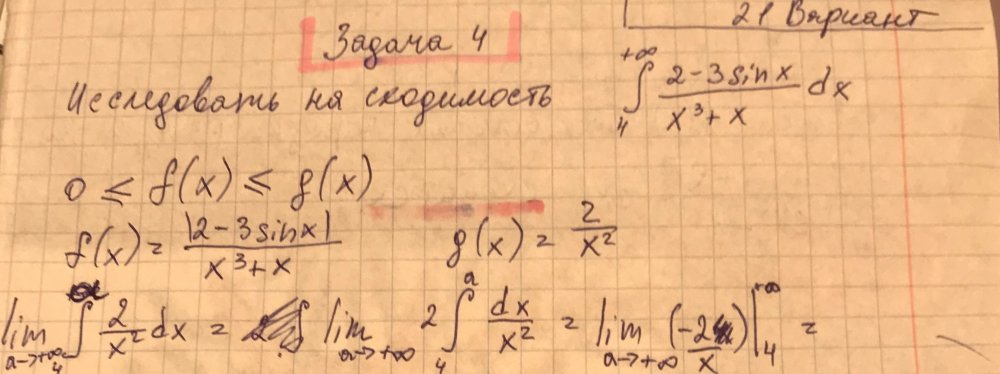 21 Вариант
Задача 4
Исследовать на сходимость ∫₄^{+∞} (2-3sinx)/(x³+x) dx
0 ≤ f(x) ≤ g(x)
f(x) = |2-3sinx|/(x³+x) g(x) = 2/x²
lim_{a→+∞} ∫₄ 2/x² dx = lim_{a→+∞} 2 ∫₄^a dx/x² = lim_{a→+∞} (-2/x)|₄^{+∞} =